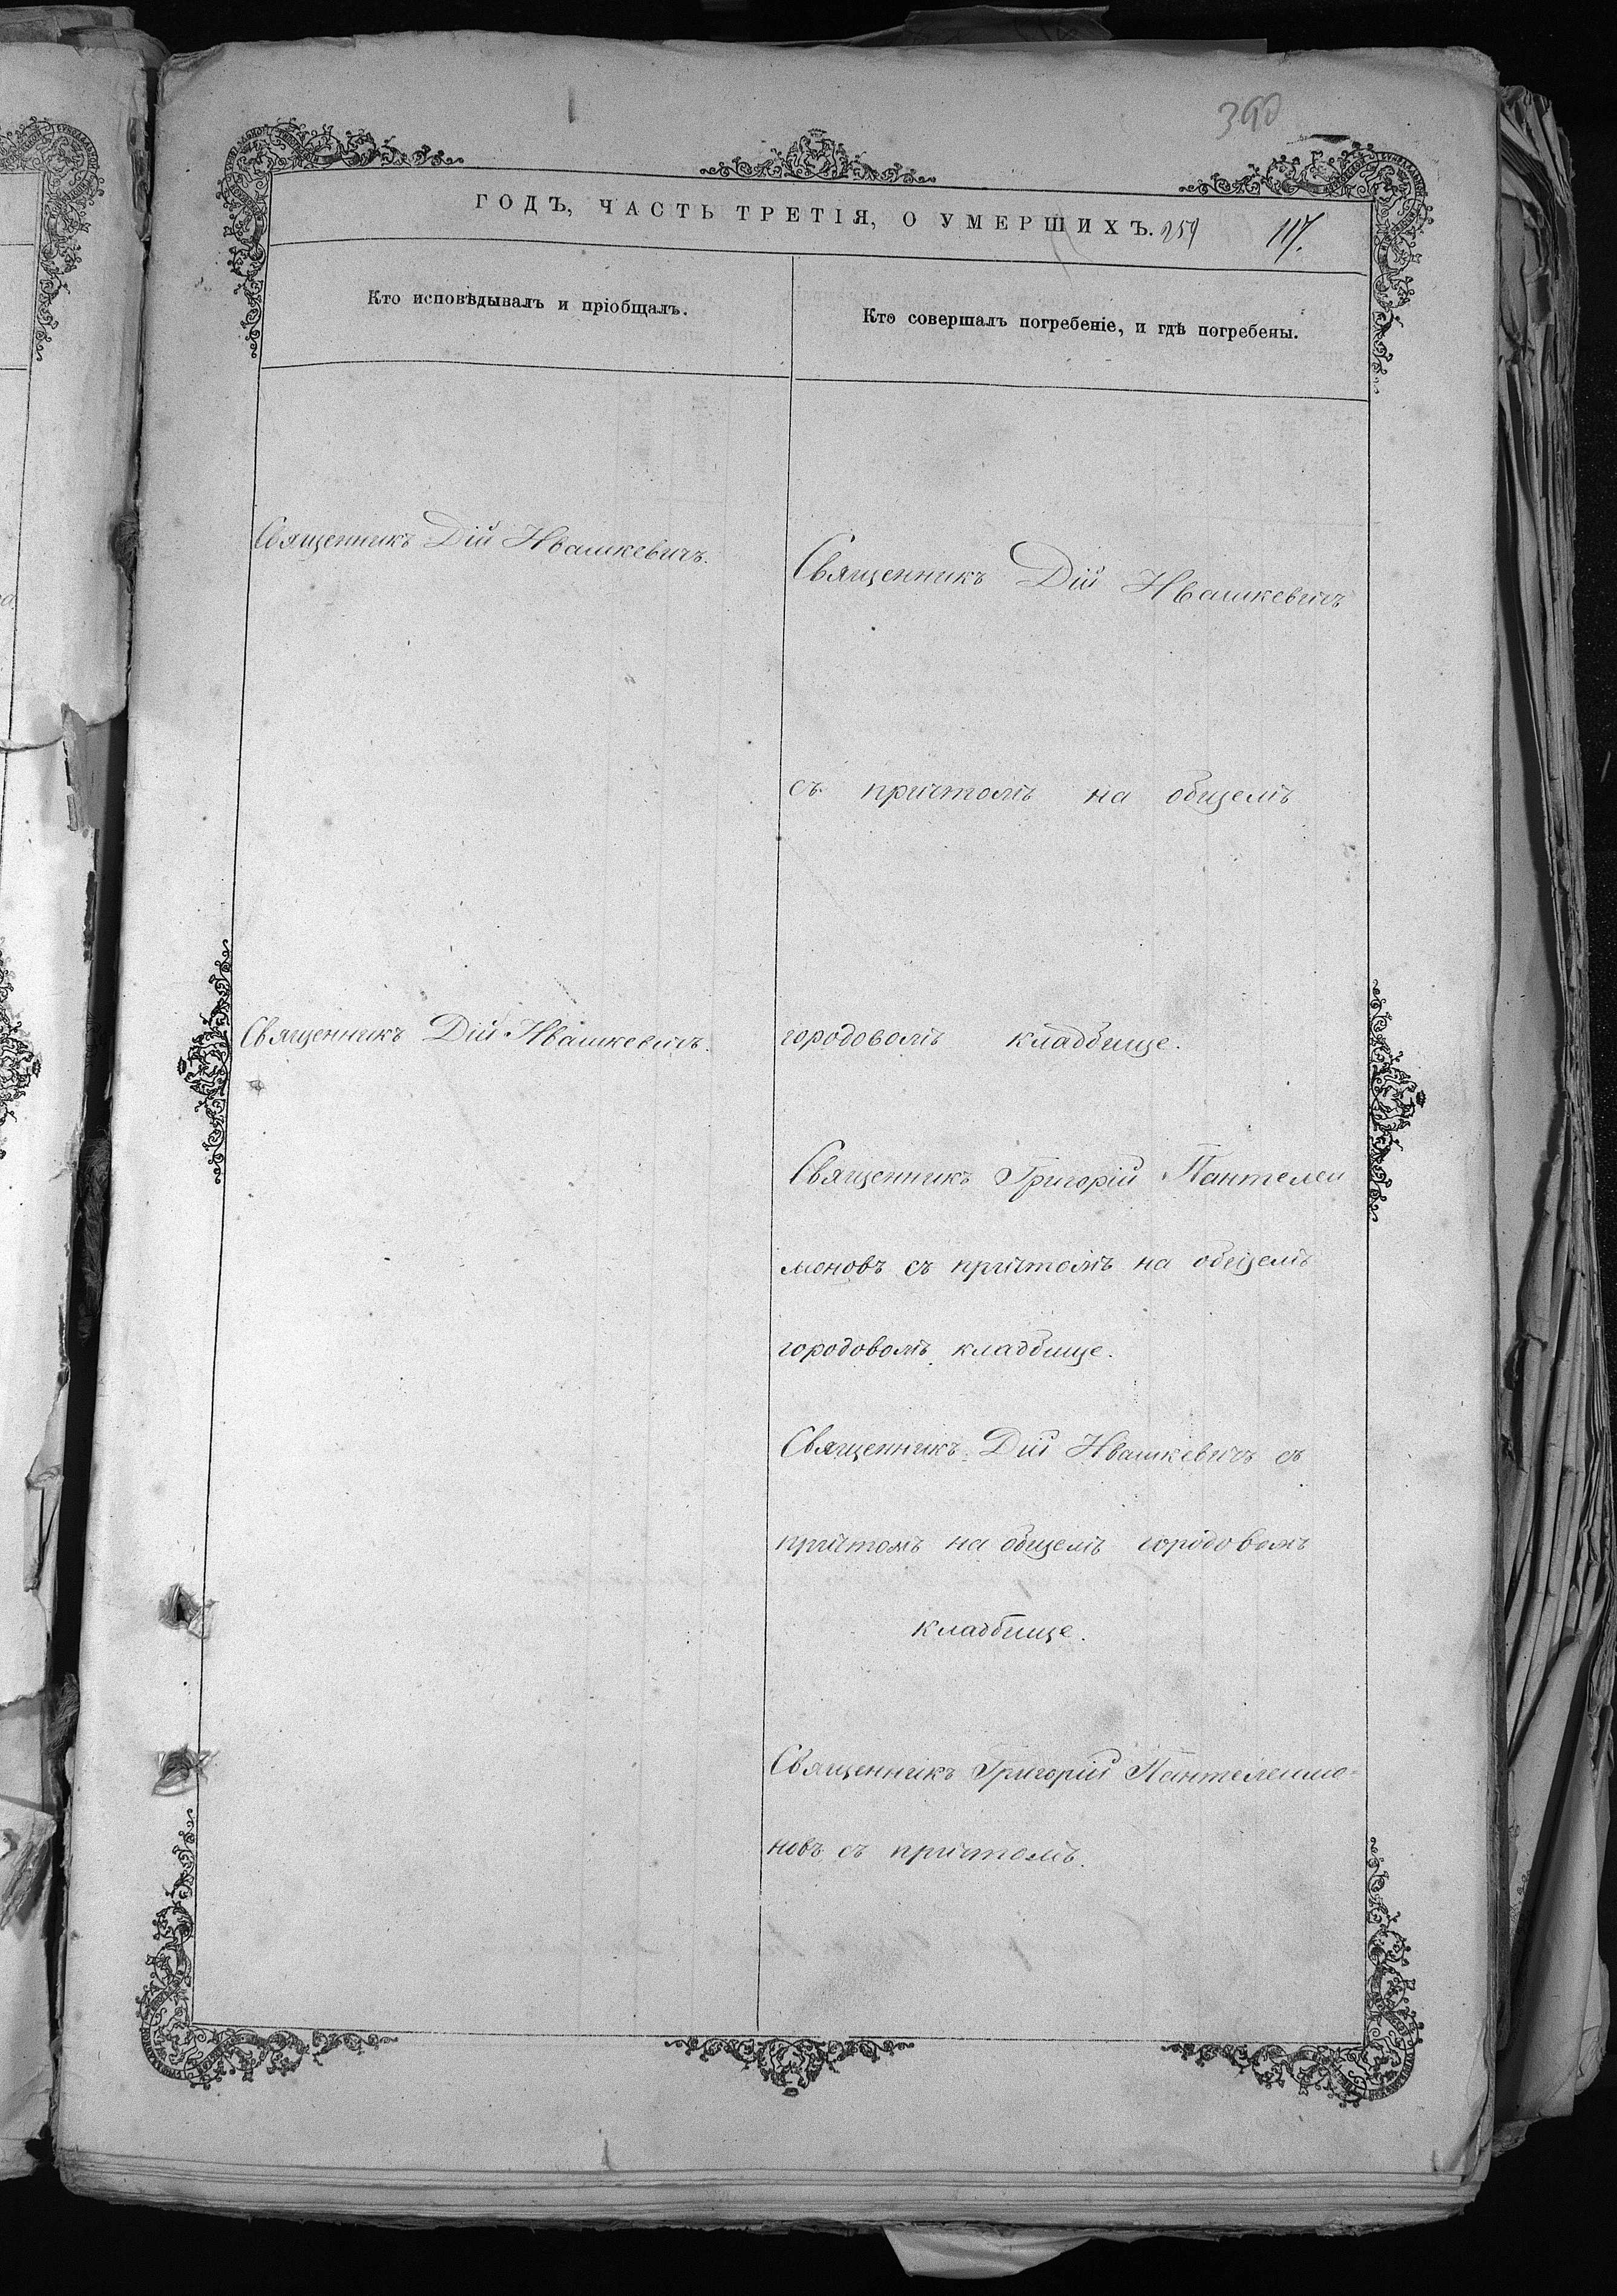 390
ГОДЪ, ЧАСТЬ ТРЕТІЯ, О УМЕРШИХЪ. 259 117.
Кто исповѣдывалъ и пріобщалъ.
Кто совершалъ погребеніе, и гдѣ погребены.
Священникъ Дій Ивашкевичъ.
Священникъ Дій Ивашкевичъ
съ причтомъ на общемъ
Священникъ Дій Ивашкевичъ.
городовомъ кладбище.
Священникъ Григорій Пантелеи
моновъ съ причтомъ на общемъ
городовомъ кладбище.
Священникъ Дій Ивашкевичъ съ
причтомъ на общемъ городовомъ
кладбище.
Священникъ Григорій Пантелеимо-
новъ съ причтомъ.